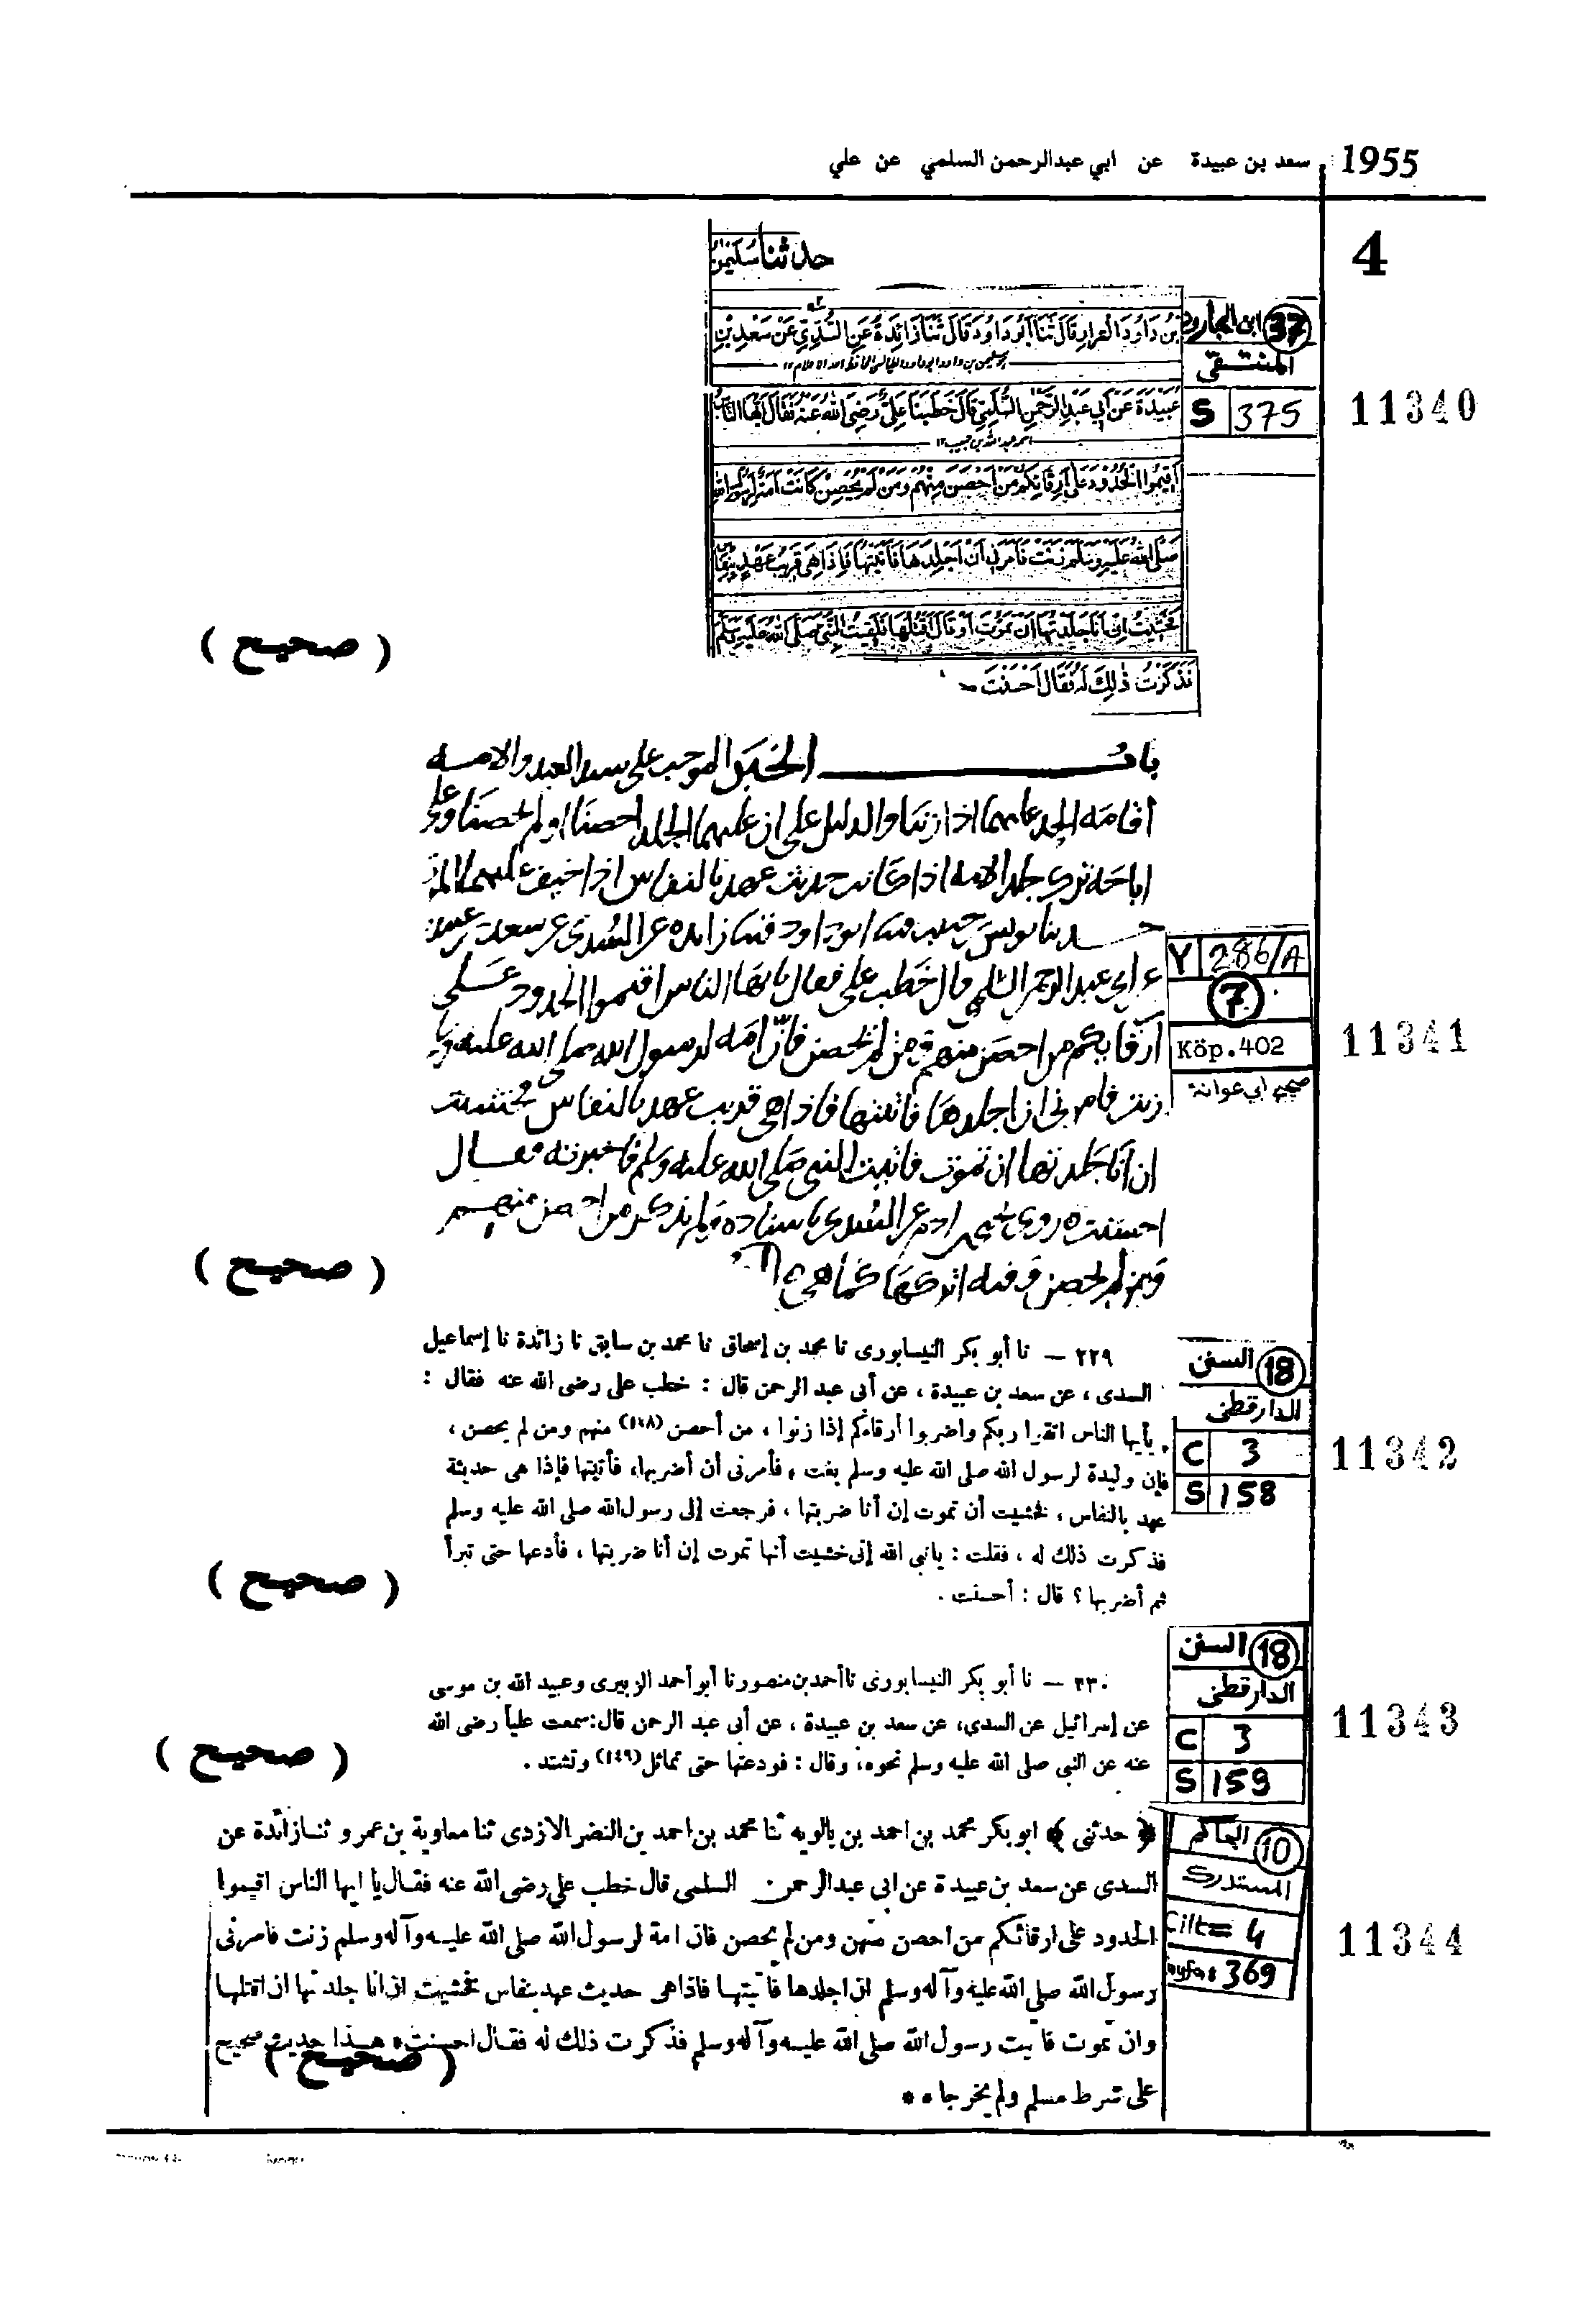 1955 سعد بن عبيدة عن ابي عبدالرحمن السلمي عن علي
4
حدثنا سليمن
37 ابن الجارود
المنتقى
S 375
11340
بْنُ دَاوُدَ القزاز قَالَ ثَنَا أَبُو دَاوُدَ قَالَ ثَنَا زَائِدَةُ عَنِ السُّدِّيِّ عَنْ سَعْدِ بْنِ
عُبَيْدَةَ عَنْ أَبِي عَبْدِ الرَّحْمٰنِ السُّلَمِيِّ قَالَ خَطَبَنَا عَلِيٌّ رَضِيَ اللهُ عَنْهُ فَقَالَ أَيُّهَا النَّاسُ
أَقِيمُوا الْحُدُودَ عَلَى أَرِقَّائِكُمْ مَنْ أَحْصَنَ مِنْهُمْ وَمَنْ لَمْ يُحْصِنْ كَانَتْ أَمَةٌ لِرَسُولِ اللهِ
صَلَّى اللهُ عَلَيْهِ وَسَلَّمَ زَنَتْ فَأَمَرَنِي أَنْ أَجْلِدَهَا فَأَتَيْتُهَا فَإِذَا هِيَ قَرِيبُ عَهْدٍ بِنِفَاسٍ
فَخَشِيْتُ إِنْ أَنَا جَلَدْتُهَا أَنْ تَمُوتَ أَوْ قَالَ أَقْتُلَهَا فَلَقِيتُ النَّبِيَّ صَلَّى اللهُ عَلَيْهِ وَسَلَّمَ
فَذَكَرْتُ ذٰلِكَ لَهُ فَقَالَ أَحْسَنْتَ –
( صحيح )
باب الخبر الموجب على سيد العبد والامه
اقامه الحد عليهما اذا زنيا والدليل على ان عليهما الجلد احصنا او لم يحصنا وعلى
اباحه ترك جلد الامه اذا كانت حديث عهد بالنفاس اذا خيف عليها الموت
حدثنا يونس بن حبيب قثنا ابو داود قثنا زايده عن السُدى عن سعد بن عبيدة
عن ابي عبد الرحمن السلمي قال خطب على فقال يا ايها الناس اقيموا الحدود على
ارقايكم من احصن منهم ومن لم يحصن فان امه لرسول الله صلى الله عليه وسلم
زنت فامرنى ان اجلدها فاتيتها فاذا هى قريب عهد بالنفاس فخشيت
ان انا جلدتها ان تموت فاتيت النبى صلى الله عليه وسلم فاخبرته فقال
احسنت ه روى يحيى بن ادم عن السُدى باسناده ولم يذكر من احصن منهم
ومن لم يحصن وفيه اتركها كما هى
Y 286/A
7
Köp.402
صحيح ابي عوانة
11341
( صحيح )
٢٢٩ – نا أبو بكر النيسابورى نا محمد بن إسحاق نا محمد بن سابق نا زائدة نا إسماعيل
السدى ، عن سعد بن عبيدة ، عن أبى عبد الرحمن قال : خطب على رضى الله عنه فقال :
يأيها الناس اتقوا ربكم واضربوا أرقاءكم إذا زنوا ، من أحصن (١٤٨) منهم ومن لم يحصن ،
فإن وليدة لرسول الله صلى الله عليه وسلم بغت ، فأمرنى أن أضربها، فأتيتها فإذا هى حديثة
عهد بالنفاس ، فخشيت أن تموت إن أنا ضربتها ، فرجعت إلى رسول الله صلى الله عليه وسلم
فذكرت ذلك له ، فقلت : يانبى الله إنى خشيت أنها تموت إن أنا ضربتها ، فأدعها حتى تبرأ
ثم أضربها ؟ قال : أحسنت .
18 السنن
الدارقطنى
C 3
S 158
11342
( صحيح )
٢٣٠ – نا أبو بكر النيسابورى نا أحمد بن منصور نا أبو أحمد الزبيرى وعبيد الله بن موسى
عن إسرائيل عن السدى، عن سعد بن عبيدة ، عن أبى عبد الرحمن قال: سمعت علياً رضى الله
عنه عن النبى صلى الله عليه وسلم نحوه، وقال : فودعتها حتى تماثل (١٤٩) وتشتد .
18 السنن
الدارقطنى
C 3
S 159
11343
( صحيح )
﴿ حدثنى ﴾ ابو بكر محمد بن احمد بن بالويه ثنا محمد بن احمد بن النضر الازدى ثنا معاوية بن عمرو ثنا زائدة عن
السدى عن سعد بن عبيدة عن ابى عبد الرحمن السلمى قال خطب على رضى الله عنه فقال يا ايها الناس اقيموا
الحدود على ارقائكم من احصن منهن ومن لم يحصن فان امة لرسول الله صلى الله عليه وآله وسلم زنت فامرنى
رسول الله صلى الله عليه وآله وسلم ان اجلدها فاتيتها فاذا هى حديث عهد بنفاس فخشيت ان انا جلدتها ان اقتلها
وان تموت فاتيت رسول الله صلى الله عليه وآله وسلم فذكرت ذلك له فقال احسنت * هذا حديث صحيح
على شرط مسلم ولم يخرجاه *
10 الحاكم
المستدرك
Cilt= 4
369
11344
( صحيح )